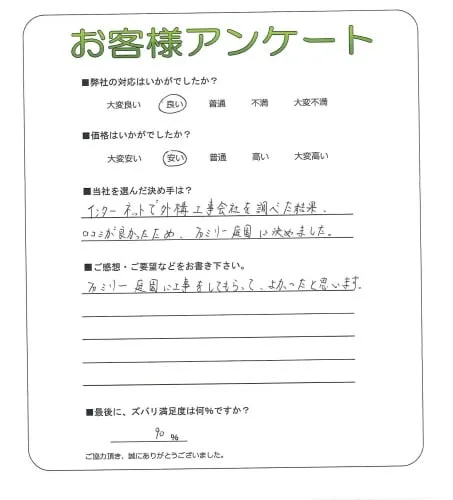 お客様アンケート
■弊社の対応はいかがでしたか？
大変良い 良い 普通 不満 大変不満
■価格はいかがでしたか？
大変安い 安い 普通 高い 大変高い
■当社を選んだ決め手は？
インターネットで外構工事会社を調べた結果、
口コミが良かったため、ファミリー庭園に決めました。
■ご感想・ご要望などをお書き下さい。
ファミリー庭園に工事をしてもらって、よかったと思います。
■最後に、ズバリ満足度は何％ですか？
90 %
ご協力頂き、誠にありがとうございました。